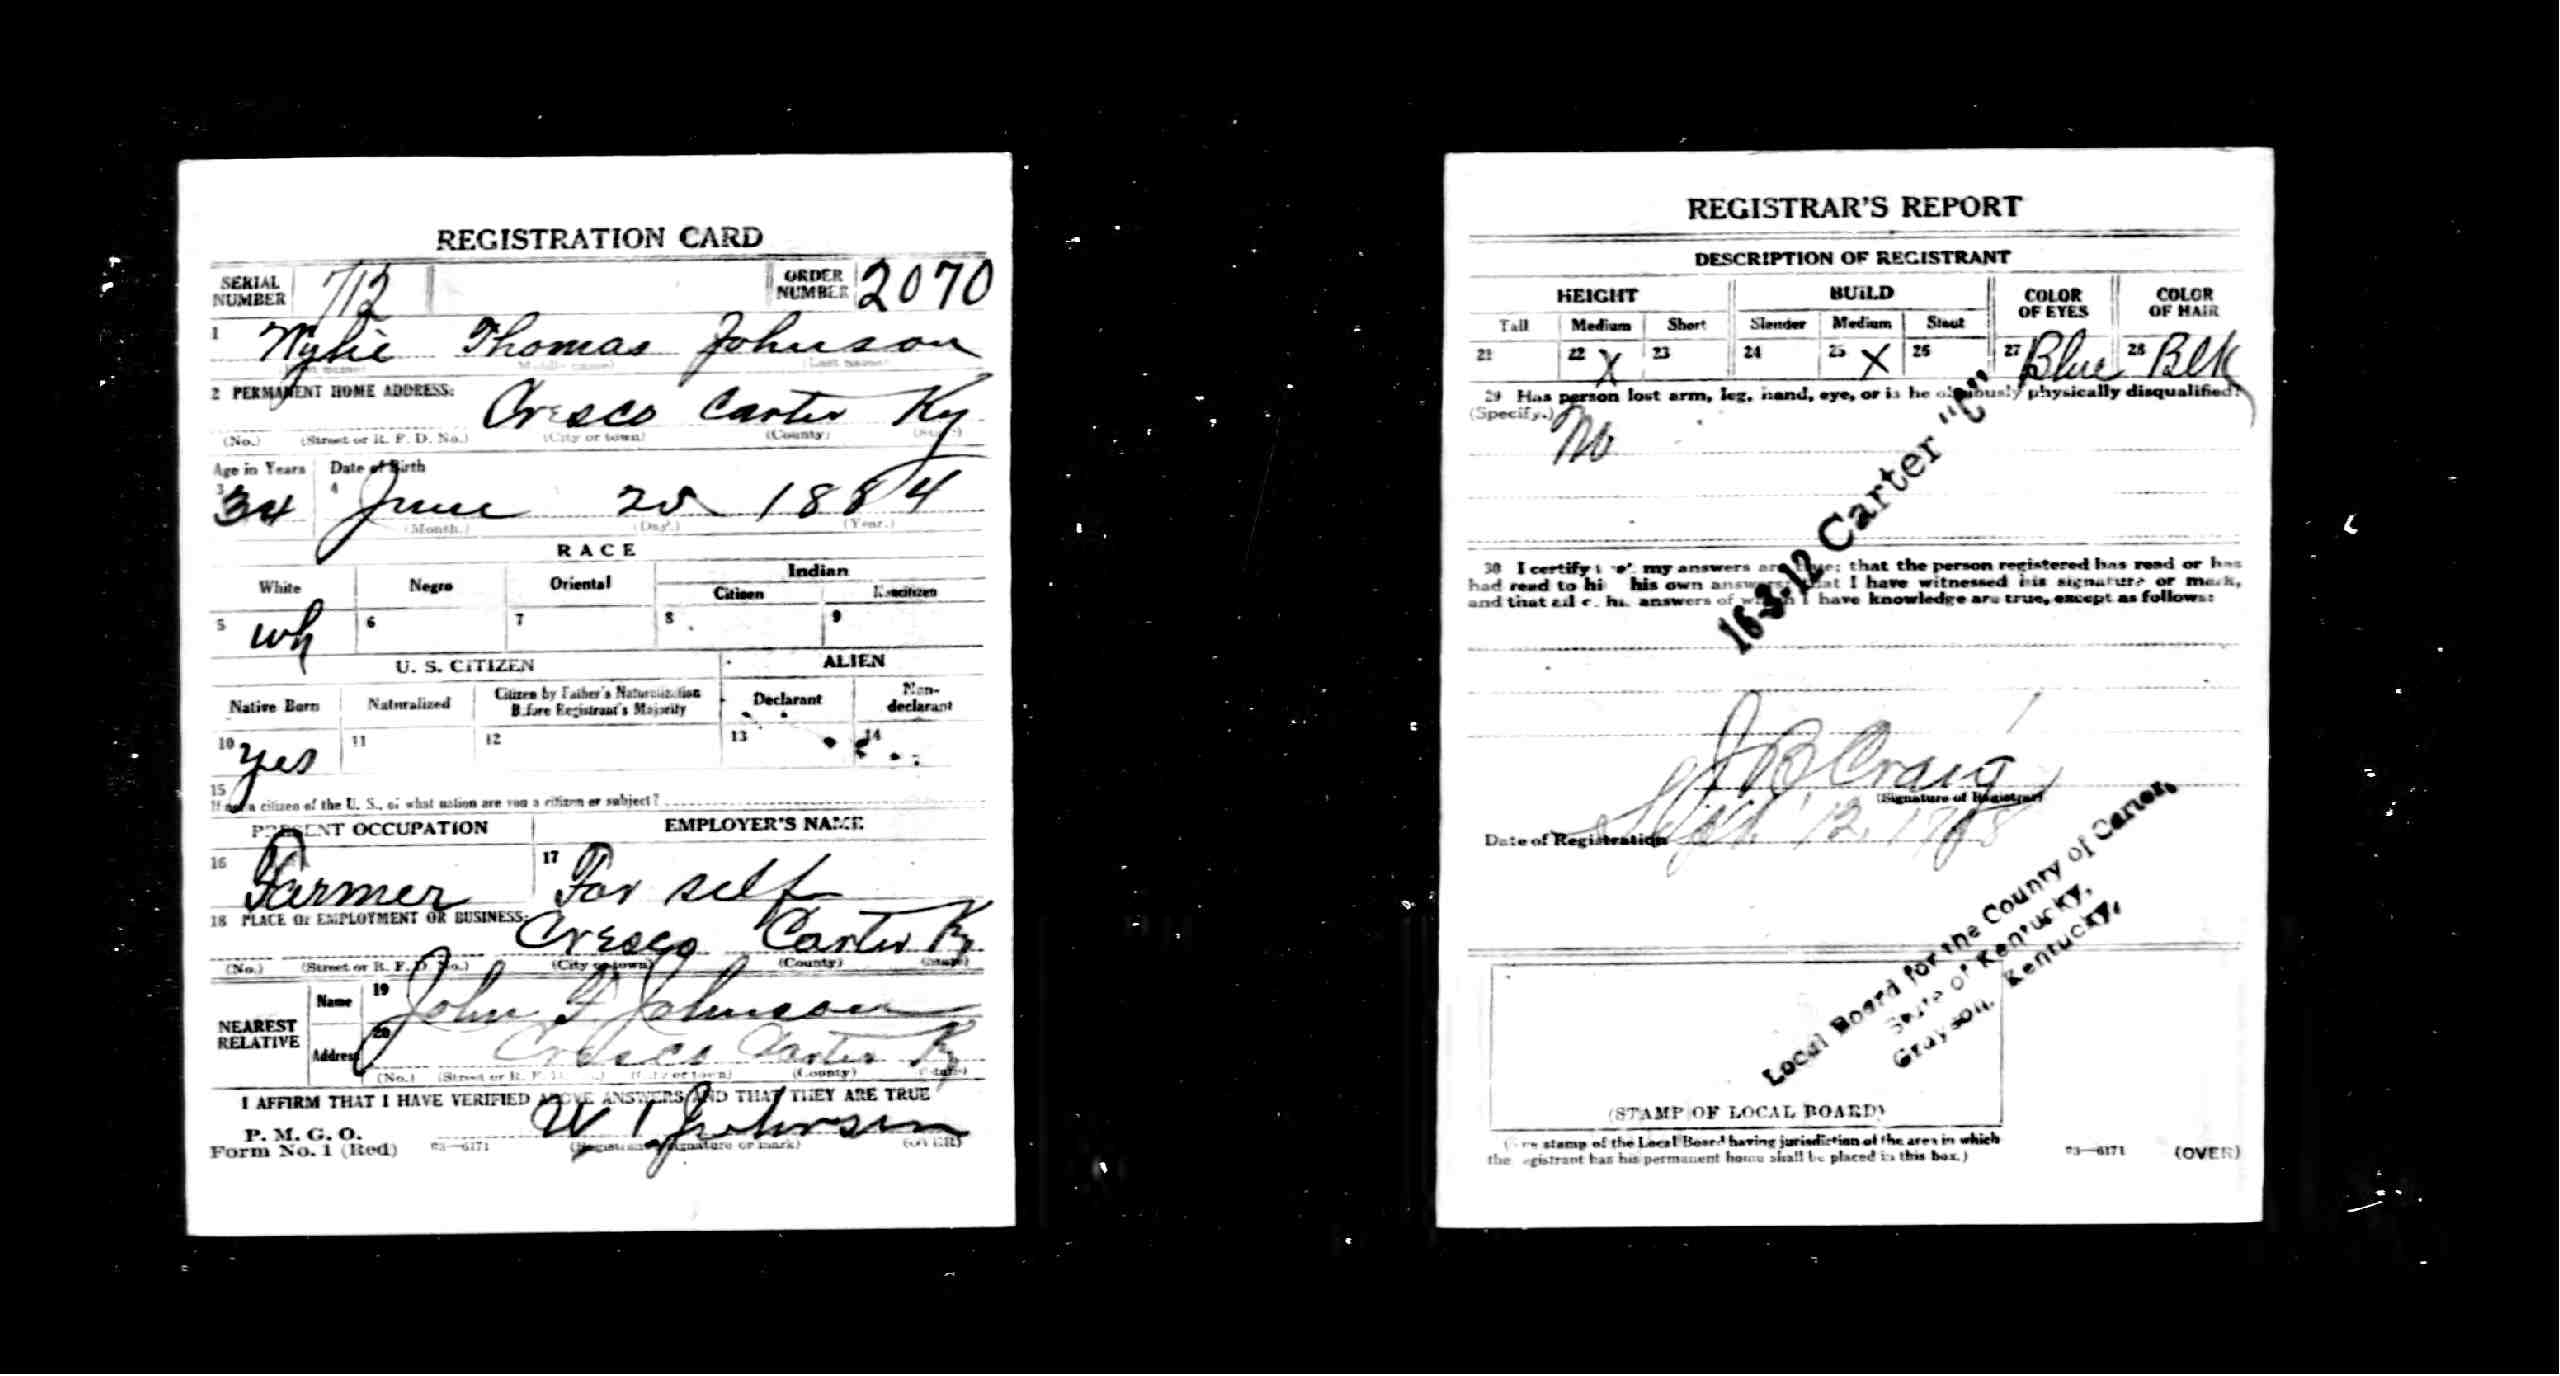 REGISTRATION CARD
SERIAL NUMBER 712 ORDER NUMBER 2070
1 Wylie Thomas Johnson
(First name) (Middle name) (Last name)
2 PERMANENT HOME ADDRESS:
Cresco Carter Ky
(No.) (Street or R. F. D. No.) (City or town) (County) (State)
Age in Years Date of Birth
3 34 4 June 20 1884
(Month.) (Day.) (Year.)
RACE
White Negro Oriental Indian
Citizen Noncitizen
5 wh 6 7 8 9
U. S. CITIZEN ALIEN
Native Born Naturalized Citizen by Father's Naturalization Before Registrant's Majority Declarant Non-declarant
10 yes 11 12 13 14
15
If not a citizen of the U. S., of what nation are you a citizen or subject?
PRESENT OCCUPATION EMPLOYER'S NAME
16 Farmer 17 For self
18 PLACE OF EMPLOYMENT OR BUSINESS:
Cresco Carter Ky
(No.) (Street or R. F. D. No.) (City or town) (County) (State)
NEAREST RELATIVE
Name 19 John Johnson
Address 20 Cresco Carter Ky
(No.) (Street or R. F. D. No.) (City or town) (County) (State)
I AFFIRM THAT I HAVE VERIFIED ABOVE ANSWERS AND THAT THEY ARE TRUE
P. M. G. O.
Form No. 1 (Red) 03—6171 W T Johnson
(Registrant's signature or mark) (OVER)
REGISTRAR'S REPORT
DESCRIPTION OF REGISTRANT
HEIGHT BUILD COLOR OF EYES COLOR OF HAIR
Tall Medium Short Slender Medium Stout
21 22 X 23 24 25 X 26 27 Blue 28 Blk
29 Has person lost arm, leg, hand, eye, or is he obviously physically disqualified?
(Specify.) No
16-3-12 Carter "C"
30 I certify that my answers are true; that the person registered has read or has
had read to him his own answers; that I have witnessed his signature or mark,
and that all of his answers of which I have knowledge are true, except as follows:
J B Craig
(Signature of Registrar)
Date of Registration Sept 12, 1918
Local Board for the County of Carter,
State of Kentucky,
Grayson, Kentucky,
(STAMP OF LOCAL BOARD)
(The stamp of the Local Board having jurisdiction of the area in which
the registrant has his permanent home shall be placed in this box.)
03—6171 (OVER)